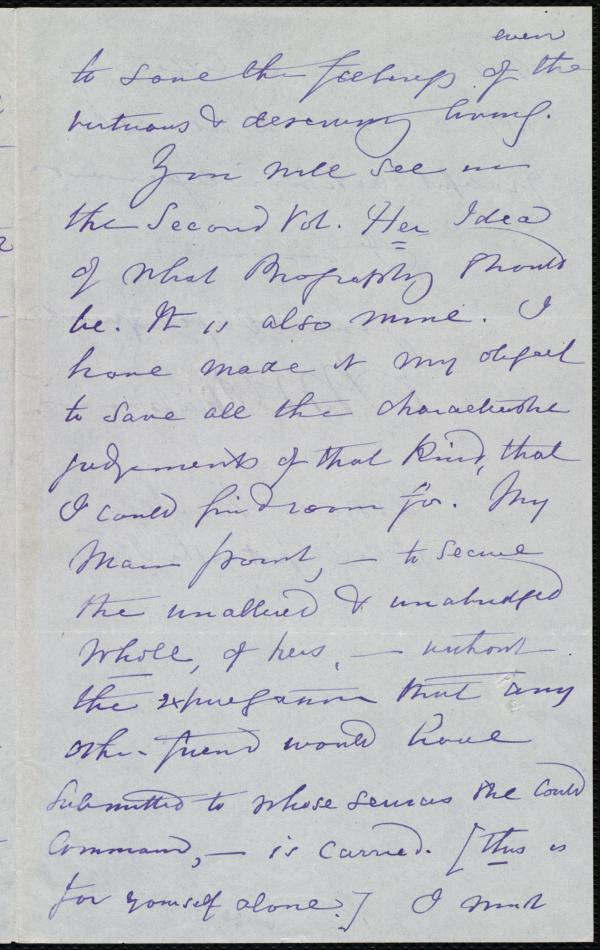 even
to save the feelings of the
virtuous & deserving living.
You will see in
the Second Vol. Her Idea
of what Biography should
be. It is also mine. I
have made it my object
to save all the characteristic
judgements of that kind, that
I could find room for. My
Main point, — to secure
the unaltered & unabridged
whole, of hers, — without
the expurgation that any
other friend would have
submitted to whose services she could
Command, — is carried. [this is
for yourself alone.] I must